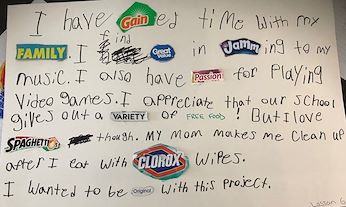 I have Gain ed time with my
find
FAMILY. I Great Value in Jamm ing to my
music. I also have Passion for Playing
Video games. I appreciate that our school
gives out a VARIETY of FREE FOOD! But I love
SPAGHETTI though. My mom makes me clean up
after I eat with CLOROX Wipes.
I wanted to be Original with this project.
Lesson 6